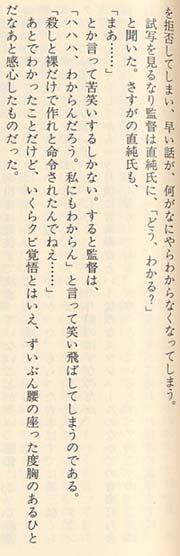 を拒否してしまい、早い話が、何がなにやらわからなくなってしまう。
試写を見るなり監督は直純氏に、「どう、わかる?」
と聞いた。さすがの直純氏も、
「まあ……」
とか言って苦笑いするしかない。すると監督は、
「ハハハ、わからんだろう。私にもわからん」と言って笑い飛ばしてしまうのである。
「殺しと裸だけで作れと命令されたんでねえ……」
あとでわかったことだけど、いくらクビ覚悟とはいえ、ずいぶん腰の座った度胸のあるひと
だなあと感心したものだった。